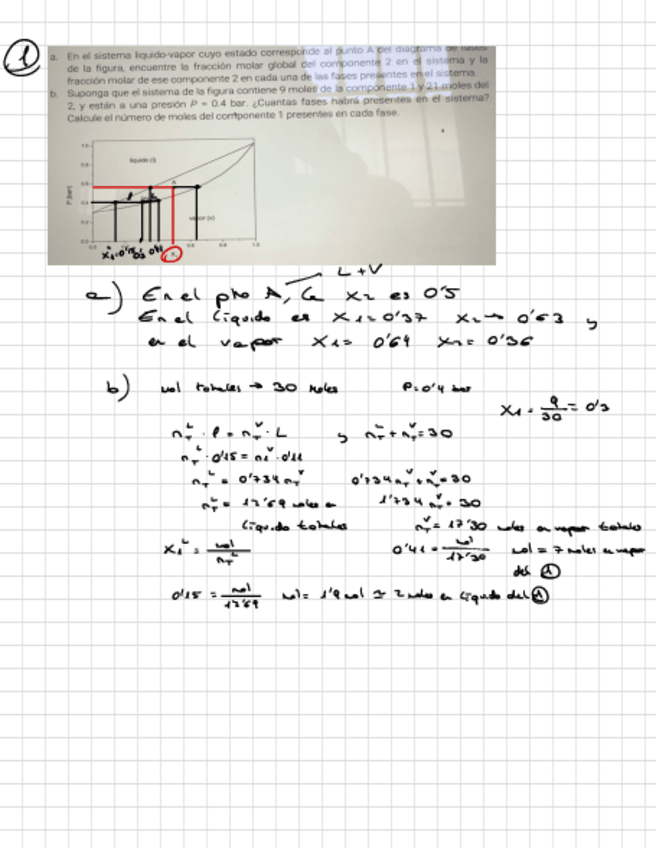 1
a. En el sistema liquido-vapor cuyo estado corresponde al punto A del diagrama de fases
de la figura, encuentre la fracción molar global del componente 2 en el sistema y la
fracción molar de ese componente 2 en cada una de las fases presentes en el sistema.
b. Suponga que el sistema de la figura contiene 9 moles de la componente 1 y 21 moles del
2, y están a una presión P = 0.4 bar. ¿Cuantas fases habrá presentes en el sistema?
Calcule el número de moles del componente 1 presentes en cada fase.
P (bar)
liquido (l)
A
vapor (v)
L+V
a) En el pto A, la x2 es 0'5
En el liquido es x1=0'37 x2→ 0'63 y
en el vapor x1= 0'64 x2= 0'36
b) mol totales → 30 moles P=0'4 bar
x1 = 9/30 = 0'3
nT^L · l = nT^V · L y nT^L + nT^V = 30
nT^L · 0'15 = nT^V · 0'11
nT^L = 0'734 nT^V 0'734 nT^V + nT^V = 30
nT^L = 12'69 moles en 1'734 nT^V = 30
liquido totales nT^V = 17'30 moles en vapor totales
x1^L = mol/nT^L 0'41 = mol/17'30 mol = 7 moles en vapor
del 1
0'15 = mol/12'69 mol = 1'9 mol ≃ 2 moles en liquido del 1